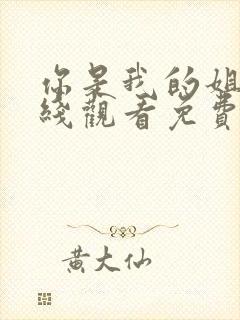 你是我的姐
綫觀看免費
黃大仙